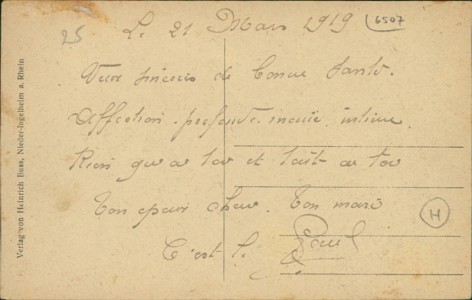 25
Le 21 Mars 1919
6507
Vœux sincères de bonne santé.
Affection profonde inouïe, intime.
Rien qu'a toi et tout a toi
Ton epoux cher. Ton mari
C'est le Paul
H
Verlag von Heinrich Buss, Nieder-Ingelheim a. Rhein